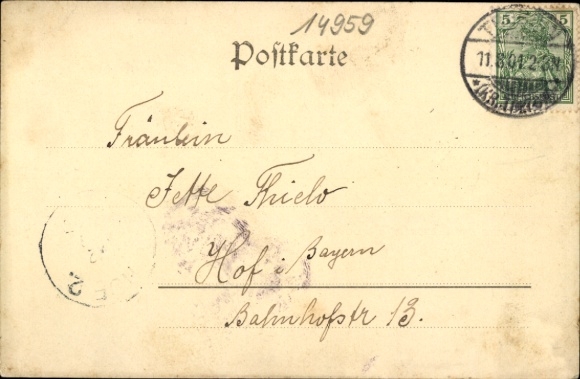 14959
Postkarte
5 5
11.8.01.2-3N.
Fräulein
Jette Thielo
Hof i Bayern
Bahnhofstr 13.
HOF 2